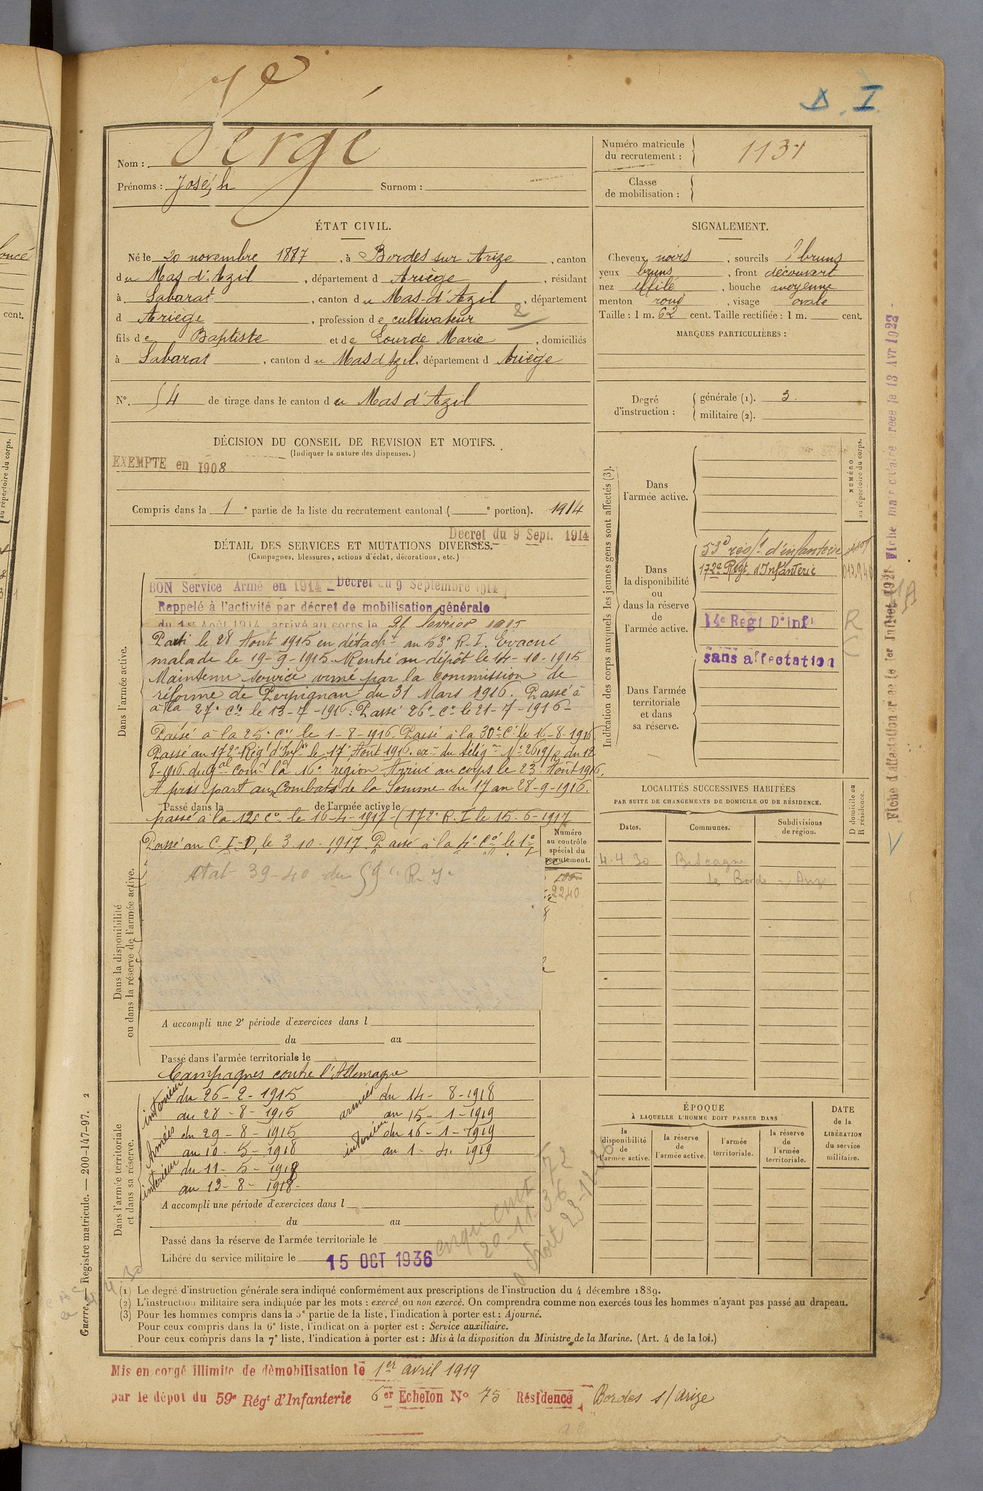 D. I
Vergé
Nom : Vergé
Prénoms : Joseph Surnom :
Numéro matricule du recrutement : 1131
Classe de mobilisation :
ÉTAT CIVIL.
Né le 20 novembre 1887, à Bordes sur Arize, canton
du Mas d'Azil, département d Ariège, résidant
à Sabarat, canton du Mas-d'Azil, département
d Ariège, profession de cultivateur
fils de Baptiste et de Lourde Marie, domiciliés
à Sabarat, canton du Mas d'Azil, département d Ariège
N°. 54 de tirage dans le canton du Mas d'Azil
SIGNALEMENT.
Cheveux noirs, sourcils bruns
yeux bruns, front découvert
nez effilé, bouche moyenne
menton rond, visage ovale
Taille : 1 m. 62 cent. Taille rectifiée : 1 m. cent.
MARQUES PARTICULIÈRES :
Degré d'instruction : générale (1). 3
militaire (2).
DÉCISION DU CONSEIL DE REVISION ET MOTIFS.
(Indiquer la nature des dispenses.)
EXEMPTE en 1908
Compris dans la 1e partie de la liste du recrutement cantonal ( e portion). 1914
Décret du 9 Sept. 1914
DÉTAIL DES SERVICES ET MUTATIONS DIVERSES.
(Campagnes, blessures, actions d'éclat, décorations, etc.)
BON Service Armé en 1914 Décret du 9 Septembre 1914
Rappelé à l'activité par décret de mobilisation générale
du 1er Août 1914, arrivé au corps le 26 février 1915
Parti le 28 Aout 1915 en détacht au 53e R.I. Evacué
malade le 19-9-1915. Rentré au dépôt le 14-10-1915
Maintenu service armé par la Commission de
réforme de Perpignan du 31 Mars 1916. Passé à
à la 27e Cie le 13-7-1916. Passé 26e Cie le 21-7-1916
Passé à la 25e Cie le 1-8-1916. Passé à la 30e Cie le 16-8-1916
Passé au 172e Régt d'Infie le 17 Août 1916. ex. du télég. N° 2619/2 du 12
8-1916 du Gal comdt la 16e région Arrivé au corps le 23 Août 1916.
A pris part aux Combats de la Somme du 17 au 28-9-1916.
Passé dans la de l'armée active le
passé à la 12e Cie le 16-4-1917 (172e R.I. le 15-6-1917
Passé au C.I.D. le 3-10-1917. Passé à la 4e Cie le 1er
Numéro au contrôle spécial du recrutement.
2240
etat 39-40 du 59e R.I.
Dans l'armée active.
Dans la disponibilité ou dans la réserve de l'armée active.
A accompli une 2e période d'exercices dans l
du au
Passé dans l'armée territoriale le
Campagnes contre l'Allemagne
intérieur du 26-2-1915 armées du 14-8-1918
au 28-8-1915 au 15-1-1919
Armées du 29-8-1915 intérieur du 16-1-1919
au 10-5-1918 au 1-4-1919
intérieur du 11-5-1918
au 13-8-1918
Dans l'armée territoriale et dans sa réserve.
A accompli une période d'exercices dans l
du au
Passé dans la réserve de l'armée territoriale le
Libéré du service militaire le 15 OCT 1936
Indication des corps auxquels les jeunes gens sont affectés (3).
NUMÉRO au répertoire du corps.
Dans l'armée active.
Dans la disponibilité ou dans la réserve de l'armée active.
53e régt d'infanterie
172e Régt d'Infanterie
14e Regt D'infie
sans affectation
Dans l'armée territoriale et dans sa réserve.
LOCALITÉS SUCCESSIVES HABITÉES
PAR SUITE DE CHANGEMENTS DE DOMICILE OU DE RÉSIDENCE.
Dates. Communes. Subdivisions de région. D domicile ou R résidence.
4.4.30
ÉPOQUE
À LAQUELLE L'HOMME DOIT PASSER DANS
la disponibilité de l'armée active. la réserve de l'armée active. l'armée territoriale. la réserve de l'armée territoriale.
DATE de la LIBÉRATION du service militaire.
(1) Le degré d'instruction générale sera indiqué conformément aux prescriptions de l'instruction du 4 décembre 1889.
(2) L'instruction militaire sera indiquée par les mots : exercé, ou non exercé. On comprendra comme non exercés tous les hommes n'ayant pas passé au drapeau.
(3) Pour les hommes compris dans la 5e partie de la liste, l'indication à porter est : Ajourné.
Pour ceux compris dans la 6e liste, l'indication à porter est : Service auxiliaire.
Pour ceux compris dans la 7e liste, l'indication à porter est : Mis à la disposition du Ministre de la Marine. (Art. 4 de la loi.)
Guerre. Registre matricule. — 200-147-97. 2
Mis en congé illimité de démobilisation le 1er avril 1919
par le dépôt du 59e Régt d'Infanterie 6er Echelon N° 75 Résidence Bordes s/ Arize